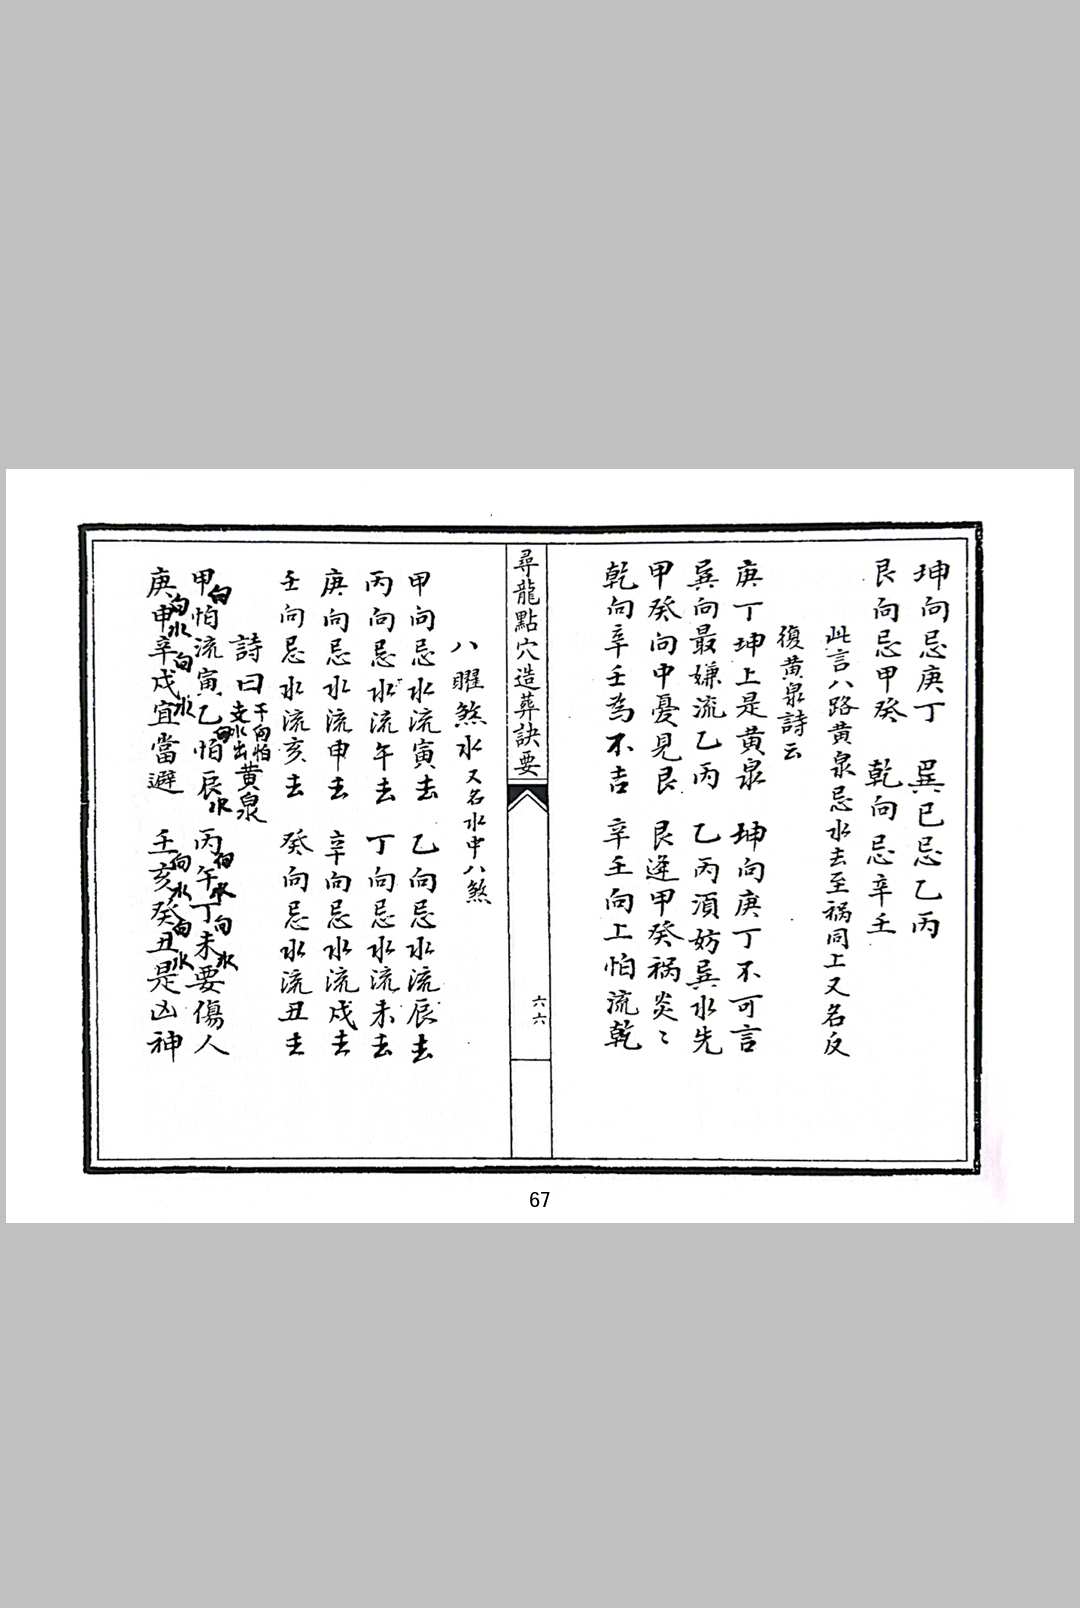 坤向忌庚丁　巽巳忌乙丙
艮向忌甲癸　乾向忌辛壬
此言八路黄泉忌水去至禍同上又名反
復黄泉詩云
庚丁坤上是黄泉　坤向庚丁不可言
巽向最嫌流乙丙　乙丙須妨巽水先
甲癸向中憂見艮　艮逢甲癸禍炎〻
乾向辛壬為不吉　辛壬向上怕流乾
尋龍點穴造葬訣要
六六
八曜煞水又名水中八煞
甲向忌水流寅去　乙向忌水流辰去
丙向忌水流午去　丁向忌水流未去
庚向忌水流申去　辛向忌水流戌去
壬向忌水流亥去　癸向忌水流丑去
詩曰干向怕支水出黄泉
甲向怕流寅乙向怕辰水　丙向午水丁向未水要傷人
庚向申水辛向戌水宜當避　壬向亥水癸向丑水是凶神
67